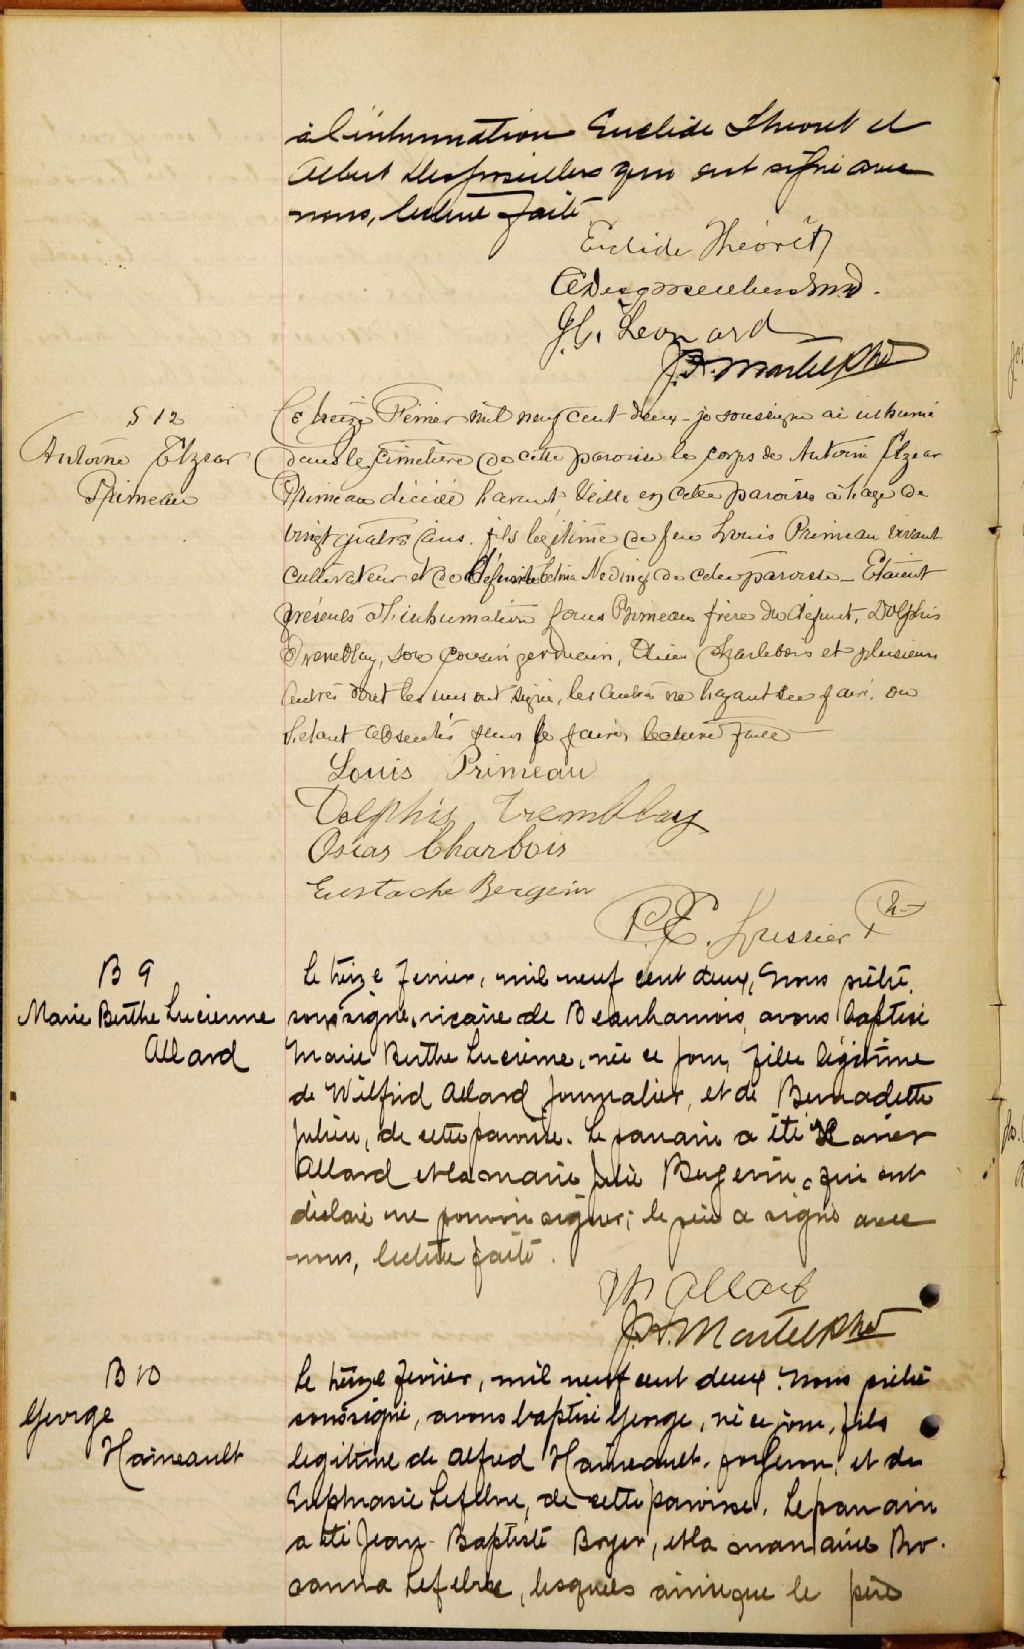 à l'inhumation Euclide Theoret et
Albert Desgroseillers qui ont signé avec
nous, lecture faite
Euclide Théorêt
ADesgroseillers MD.
J.C. Leonard
J.A. Martel Ptre
S 12
Antoine Elzear
Primeau
Ce treize Fevrier mil neuf cent deux - je soussigné ai inhumé
dans le cimetière de cette paroisse le corps de Antoine Elzear
Primeau décédé l'avant Veille en cette paroisse à l'age de
vingt quatre ans. fils legitime de feu Louis Primeau vivant
cultivateur et de de cette paroisse - Etaient
présents à l'inhumation Louis Primeau frère du défunt, Dolphis
Tremblay, son cousin germain, Charlebois et plusieurs
autres dont les uns ont signé, les autres ne l'ayant su faire ou
s'etant absentés sans le faire, lecture faite
Louis Primeau
Dolphis Tremblay
Oscar Charbois
Eustache Bergevin
P.E. Lussier Ptr
B 9
Marie Berthe Lucienne
Allard
Le treize Fevrier, mil neuf cent deux, Nous prêtre
soussigné, vicaire de Beauharnois avons baptisé
Marie Berthe Lucienne, née ce jour, fille légitime
de Wilfrid Allard journalier, et de Bernadette
Julien, de cette paroisse. Le parrain a été Xavier
Allard et la marraine Julie Bergevin, qui ont
déclaré ne pouvoir signer; le père a signé avec
nous, lecture faite.
W Allard
J.A. Martel Ptre
B 10
George
Haineault
Le treize fevrier, mil neuf cent deux. Nous prêtre
soussigné, avons baptisé George, né ce jour, fils
legitime de Alfred Haineault, forgeron, et de
Euphrasie Lefebvre, de cette paroisse. Le parrain
a été Jean-Baptiste Boyer, et la marraine Ro-
sanna Lefebvre, lesquels ainsi que le père